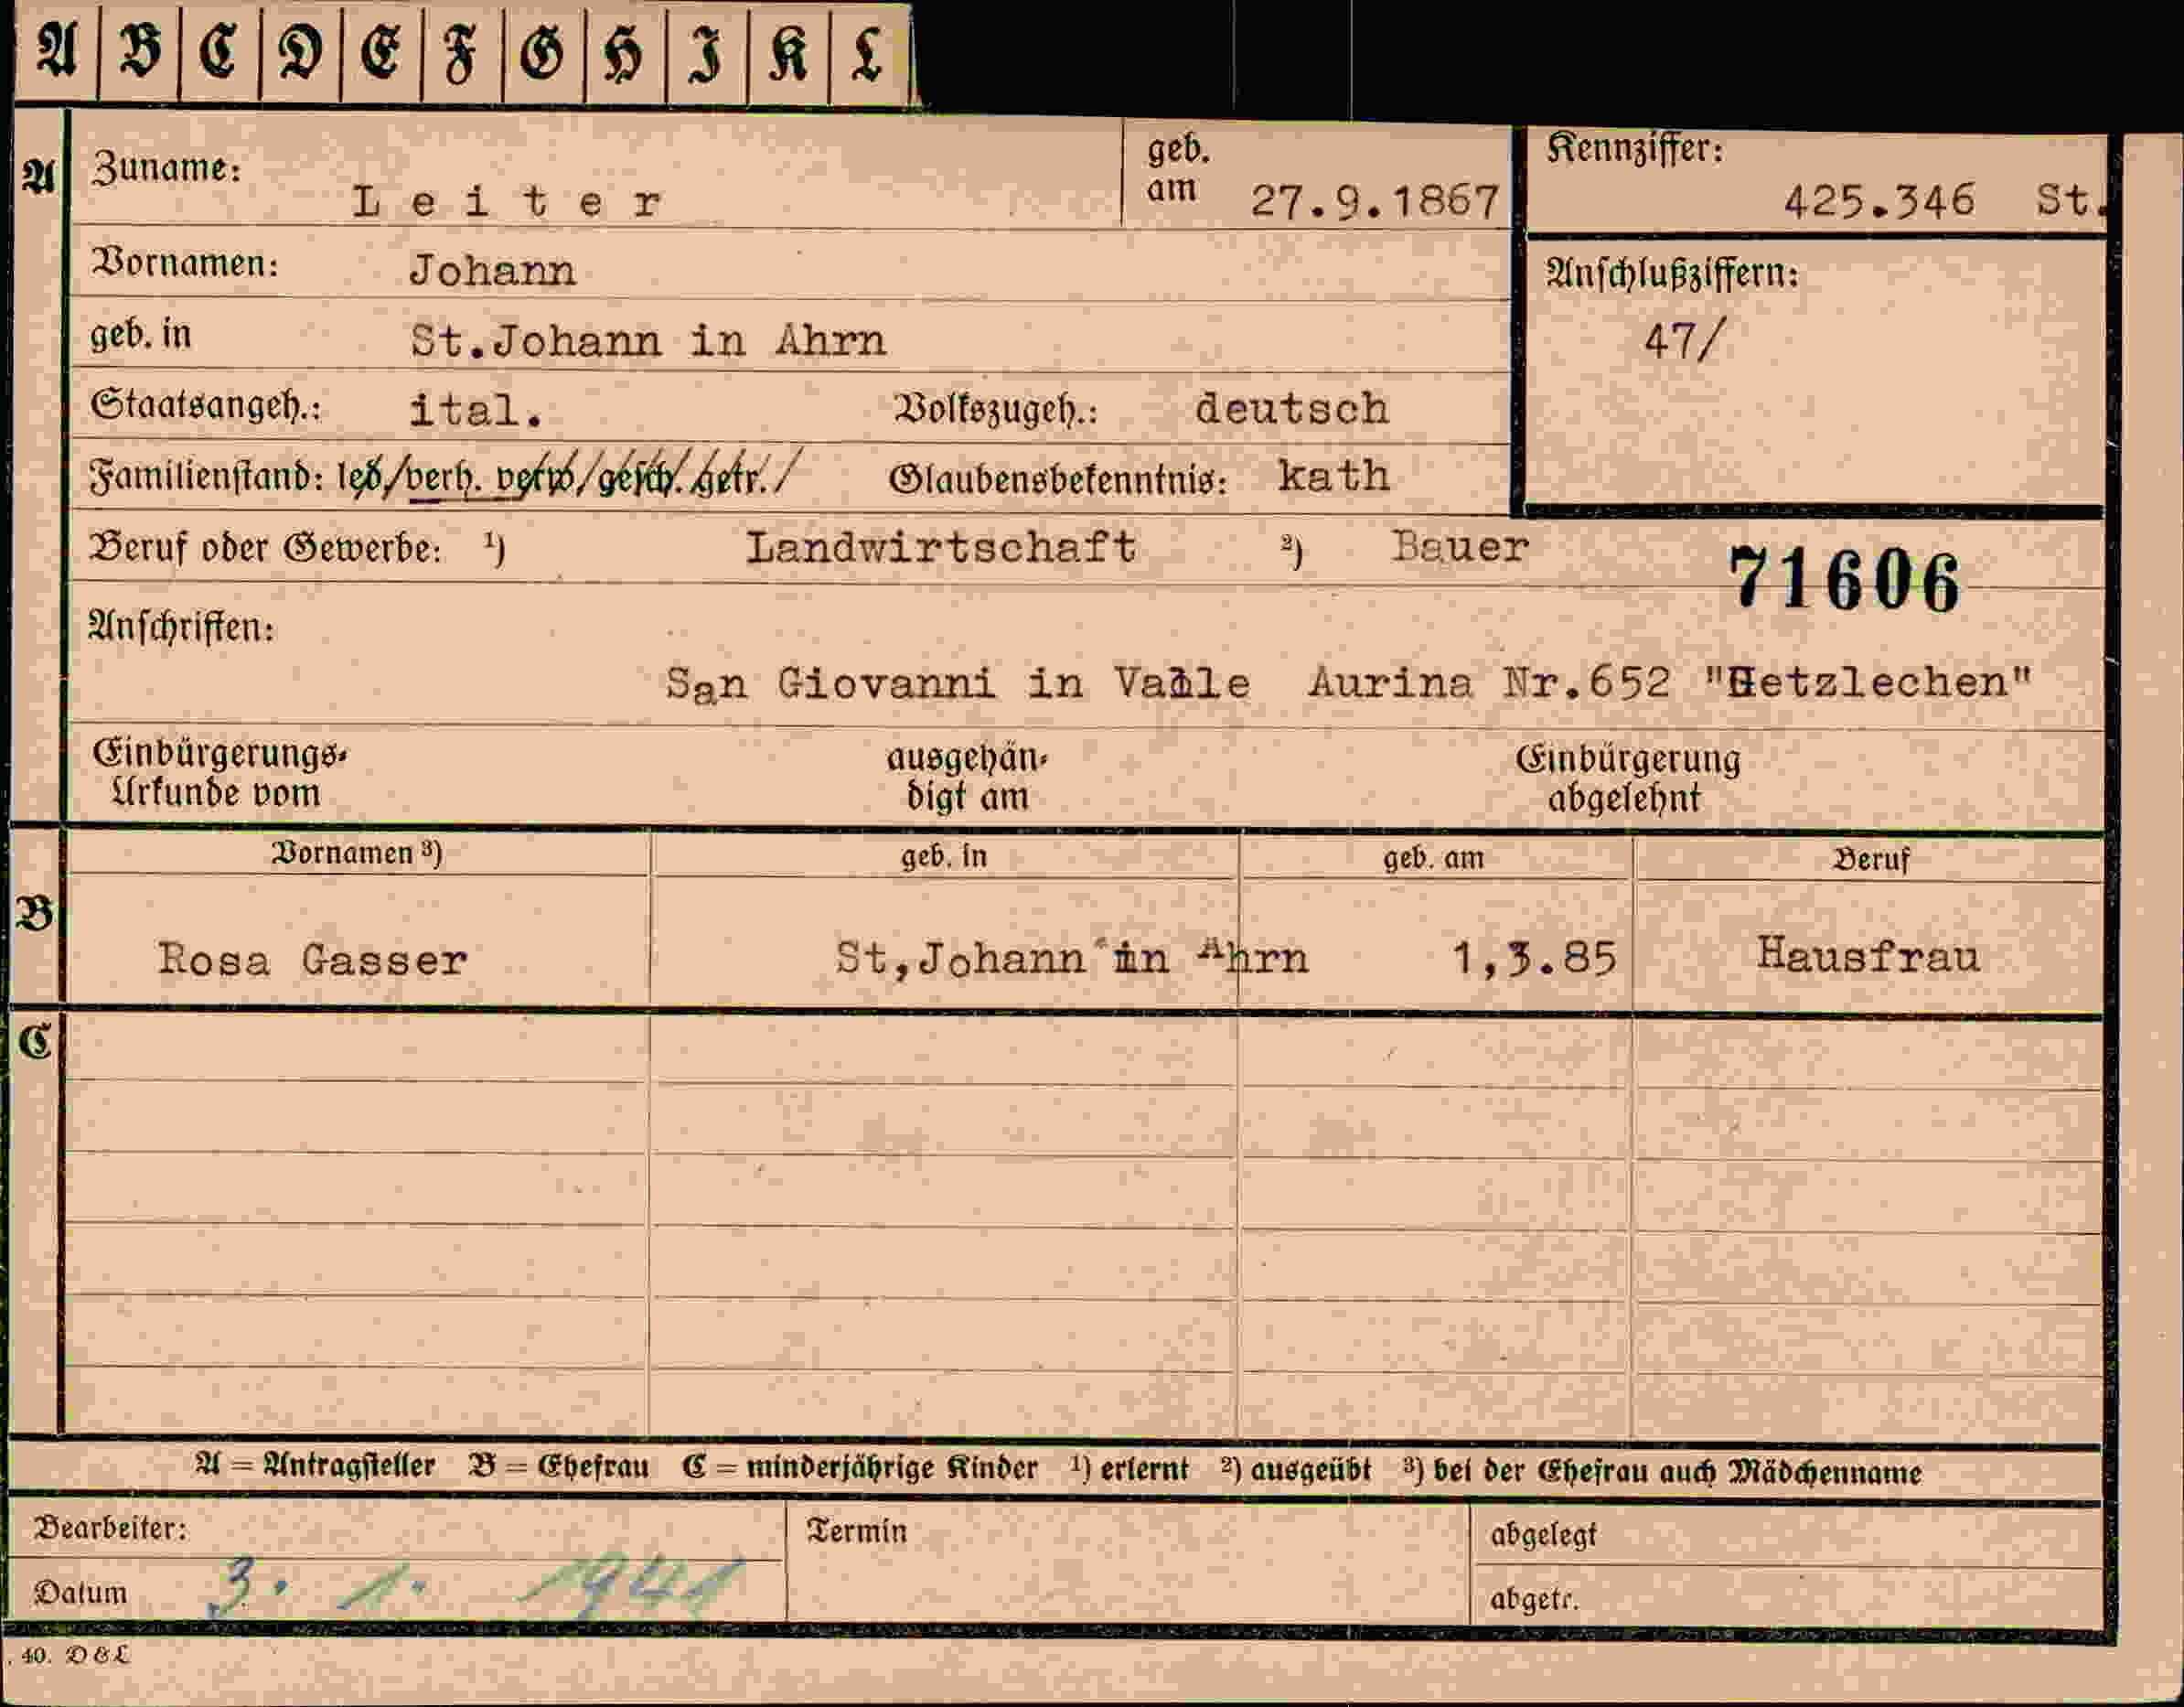 A B C D E F G H I K L
A Zuname: Leiter geb. am 27.9.1867 Kennziffer: 425.346 St.
Vornamen: Johann Anschlußziffern:
geb. in St.Johann in Ahrn 47/
Staatsangeh.: ital. Volkszugeh.: deutsch
Familienstand: led/verh. verw/gesch. getr./ Glaubensbekenntnis: kath
Beruf oder Gewerbe: 1) Landwirtschaft 2) Bauer 71606
Anschriften:
San Giovanni in Valle Aurina Nr.652 "Hetzlechen"
Einbürgerungs- ausgehän- Einbürgerung
Urkunde vom digt am abgelehnt
Vornamen 3) geb. in geb. am Beruf
B Rosa Gasser St,Johann in Ahrn 1,3.85 Hausfrau
C
A = Antragsteller B = Ehefrau C = minderjährige Kinder 1) erlernt 2) ausgeübt 3) bei der Ehefrau auch Mädchenname
Bearbeiter: Termin abgelegt
Datum 3. 1. 1941 abgetr.
. 40. D & L